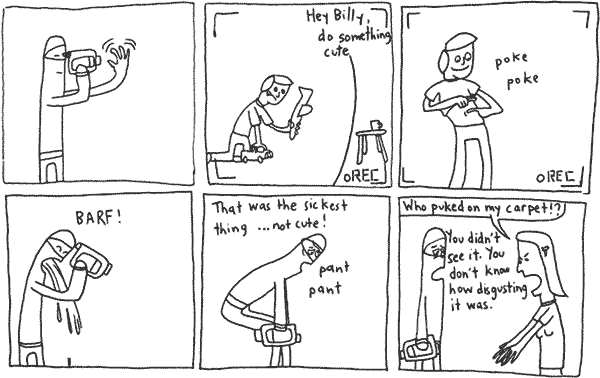 Hey Billy,
do something
cute
OREC
poke
poke
OREC
BARF!
That was the sickest
thing ...not cute!
pant
pant
Who puked on my carpet!?
You didn't
see it. You
don't know
how disgusting
it was.